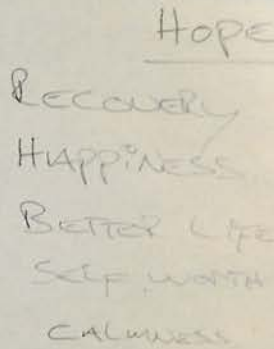 HOPE
RECOVERY
HAPPINESS
BETTER LIFE
SELF WORTH
CALMNESS